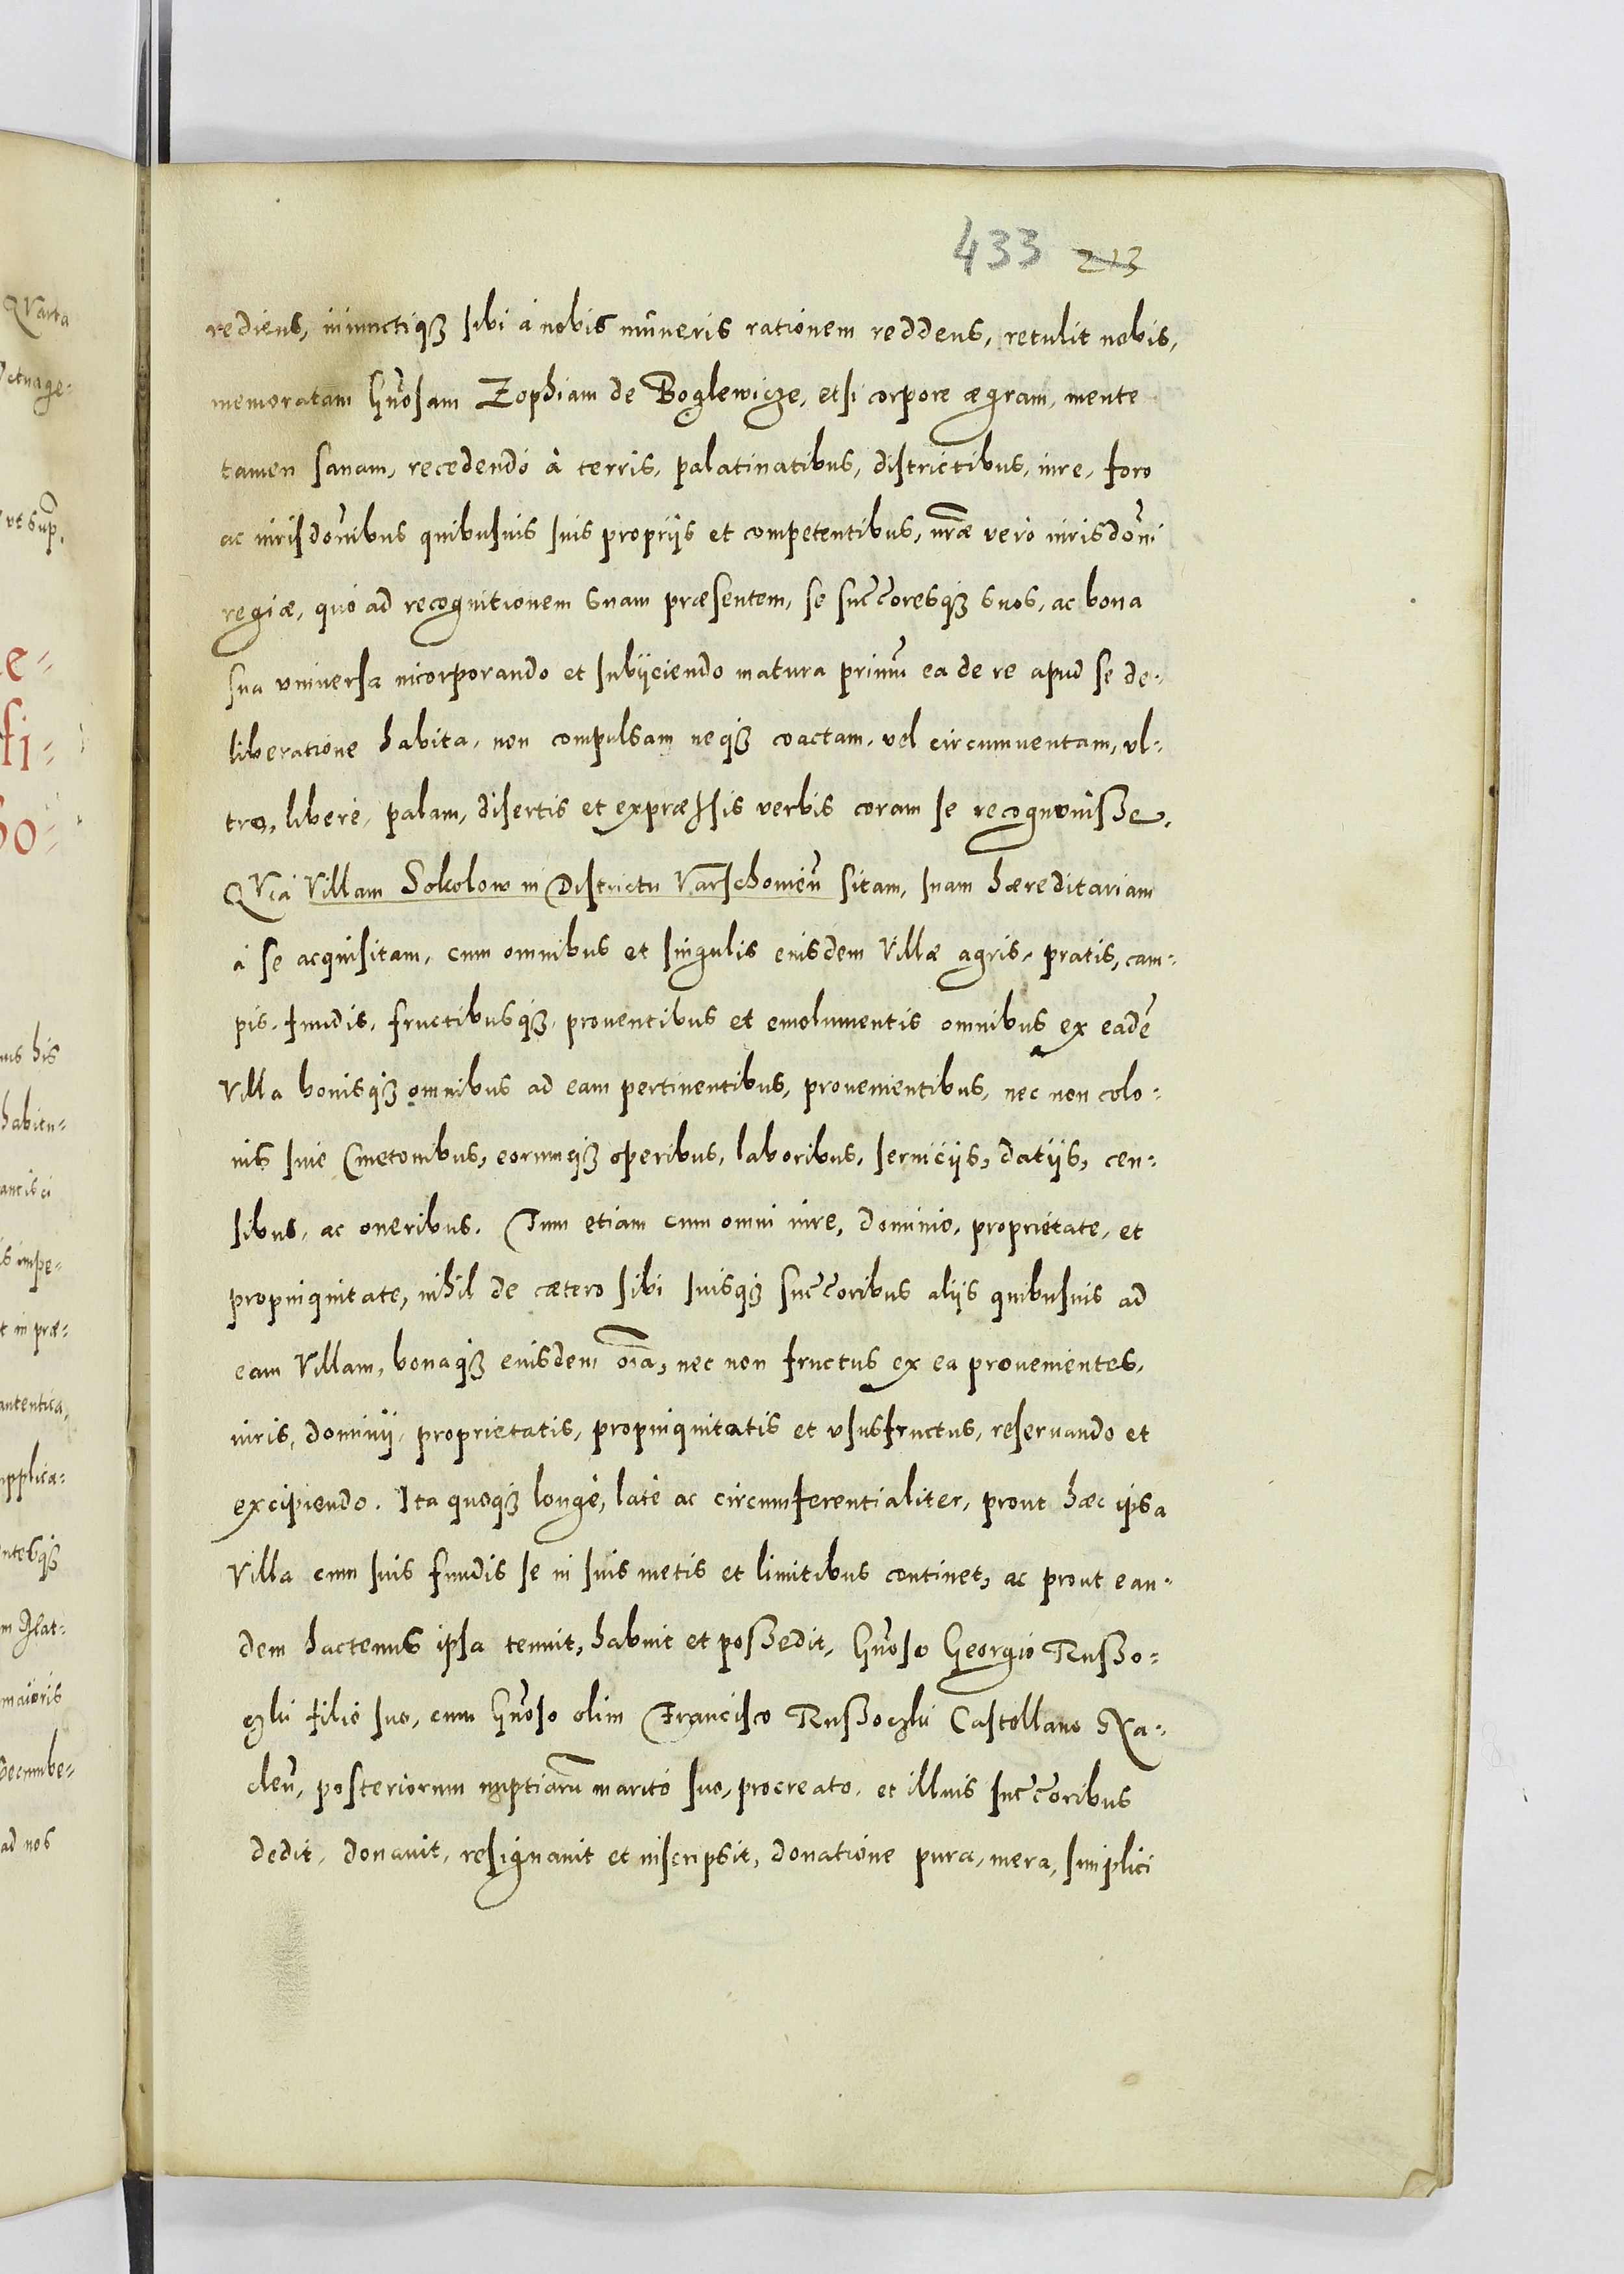 433 213
rediens, iniunctiqȝ sibi à nobis muneris rationem reddens, retulit nobis,
memoratam Gñosam Zophiam de Boglewicze, etsi corpore ægram, mente
tamen sanam, recedendo à terris, palatinatibus, districtibus, iure, foro
ac iurisdoñibus quibusuis suis proprijs et competentibus, nr̃æ vero iurisdoñi
regiæ, quo ad recognitionem suam præsentem, se succ̃oresqȝ suos, ac bona
sua vniuersa incorporando et subijciendo matura primũ ea de re apud se de-
liberatione habita, non compulsam neqȝ coactam, vel circumuentam, vl-
tro, liberè, palam, disertis et expræssis verbis coram se recognouisse.
QVia Villam Sokolow in Districtu Varschouieñ sitam, suam hæreditariam
à se acquisitam, cum omnibus et singulis eiusdem Villæ agris, pratis, cam-
pis, fundis, fructibusqȝ, prouentibus et emolumentis omnibus ex eadẽ
Villa bonisqȝ omnibus ad eam pertinentibus, prouenientibus, nec non colo-
nis siue Cmetonibus, eorumqȝ operibus, laboribus, seruicijs, datijs, cen-
sibus, ac oneribus. Tum etiam cum omni iure, dominio, proprietate, et
propinquitate, nihil de cætero sibi suisqȝ succ̃oribus alijs quibusuis ad
eam Villam, bonaqȝ eiusdem oĩa, nec non fructus ex ea prouenientes,
iuris, dominij, proprietatis, propinquitatis et vsusfructus, reseruando et
excipiendo. Ita quoqȝ longè, latè ac circumferentialiter, prout hæc ipsa
Villa cum suis fundis se in suis metis et limitibus continet, ac prout ean-
dem hactenus ipsa tenuit, habuit et possedit, Gñoso Georgio Russo-
czki filio suo, cum Gñoso olim Francisco Russoczki Castellano Na-
cleñ, posteriorum nuptiarũ marito suo, procreato, et illius succ̃oribus
dedit, donauit, resignauit et inscripsit, donatione pura, mera, simplici